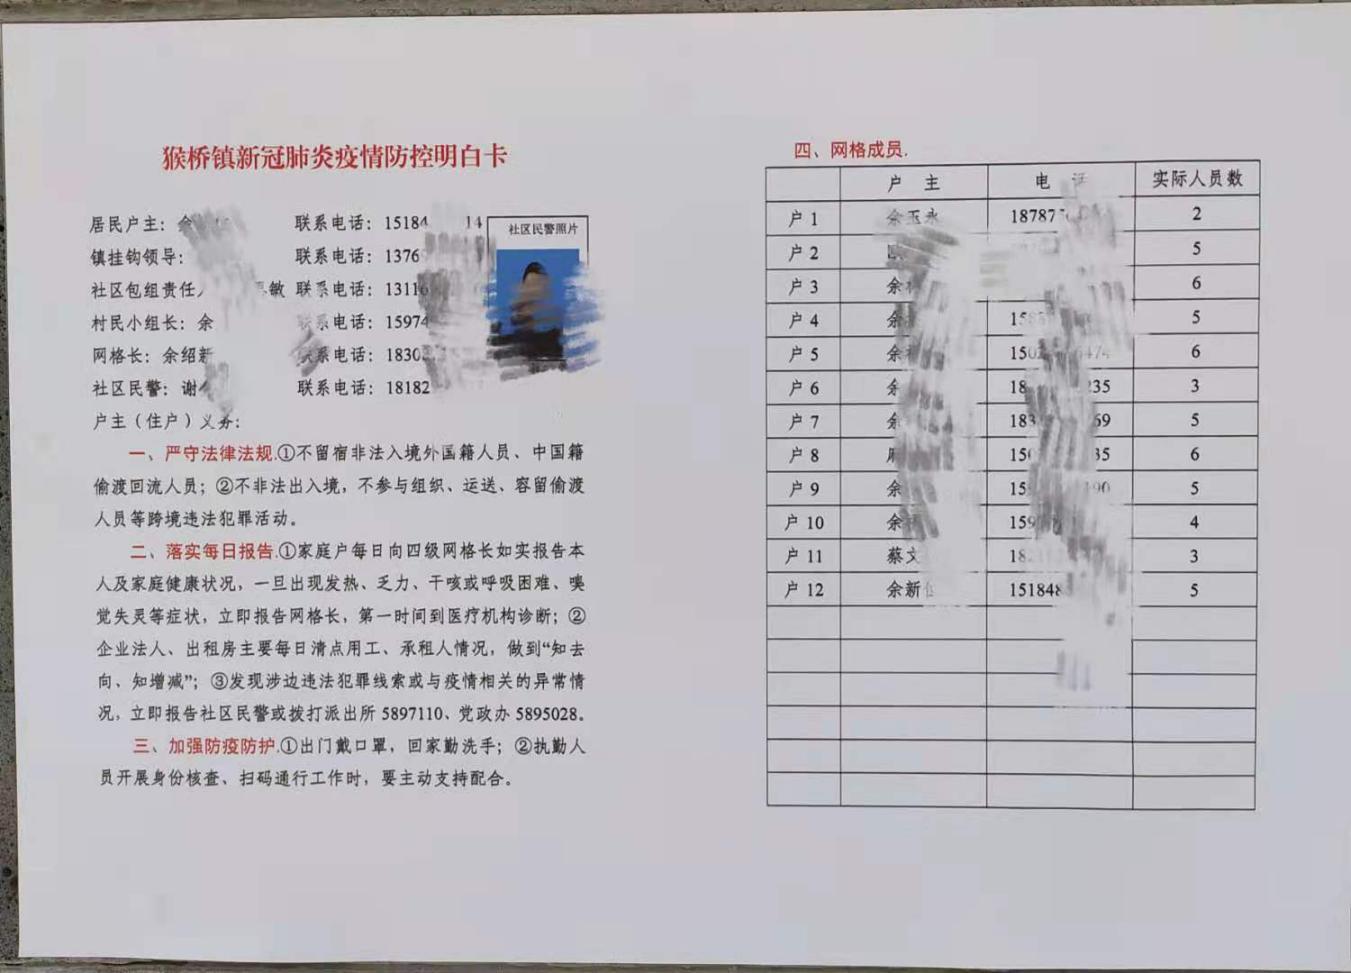 猴桥镇新冠肺炎疫情防控明白卡
居民户主：余 联系电话：15184 14
社区民警照片
镇挂钩领导： 联系电话：1376
社区包组责任人 敏 联系电话：13116
村民小组长：余 联系电话：15974
网格长：余绍新 联系电话：1830
社区民警：谢 联系电话：18182
户主（住户）义务：
一、严守法律法规.①不留宿非法入境外国籍人员、中国籍
偷渡回流人员；②不非法出入境，不参与组织、运送、容留偷渡
人员等跨境违法犯罪活动。
二、落实每日报告.①家庭户每日向四级网格长如实报告本
人及家庭健康状况，一旦出现发热、乏力、干咳或呼吸困难、嗅
觉失灵等症状，立即报告网格长，第一时间到医疗机构诊断；②
企业法人、出租房主要每日清点用工、承租人情况，做到“知去
向、知增减”；③发现涉边违法犯罪线索或与疫情相关的异常情
况，立即报告社区民警或拨打派出所 5897110、党政办 5895028。
三、加强防疫防护.①出门戴口罩，回家勤洗手；②执勤人
员开展身份核查、扫码通行工作时，要主动支持配合。
四、网格成员.
户 主 电 话 实际人员数
户 1 余玉永 18787 2
户 2 5
户 3 余 6
户 4 余 15 5
户 5 余 150 474 6
户 6 余 18 235 3
户 7 余 183 69 5
户 8 15 35 6
户 9 余 15 190 5
户 10 余 159 4
户 11 蔡文 18 3
户 12 余新 151848 5